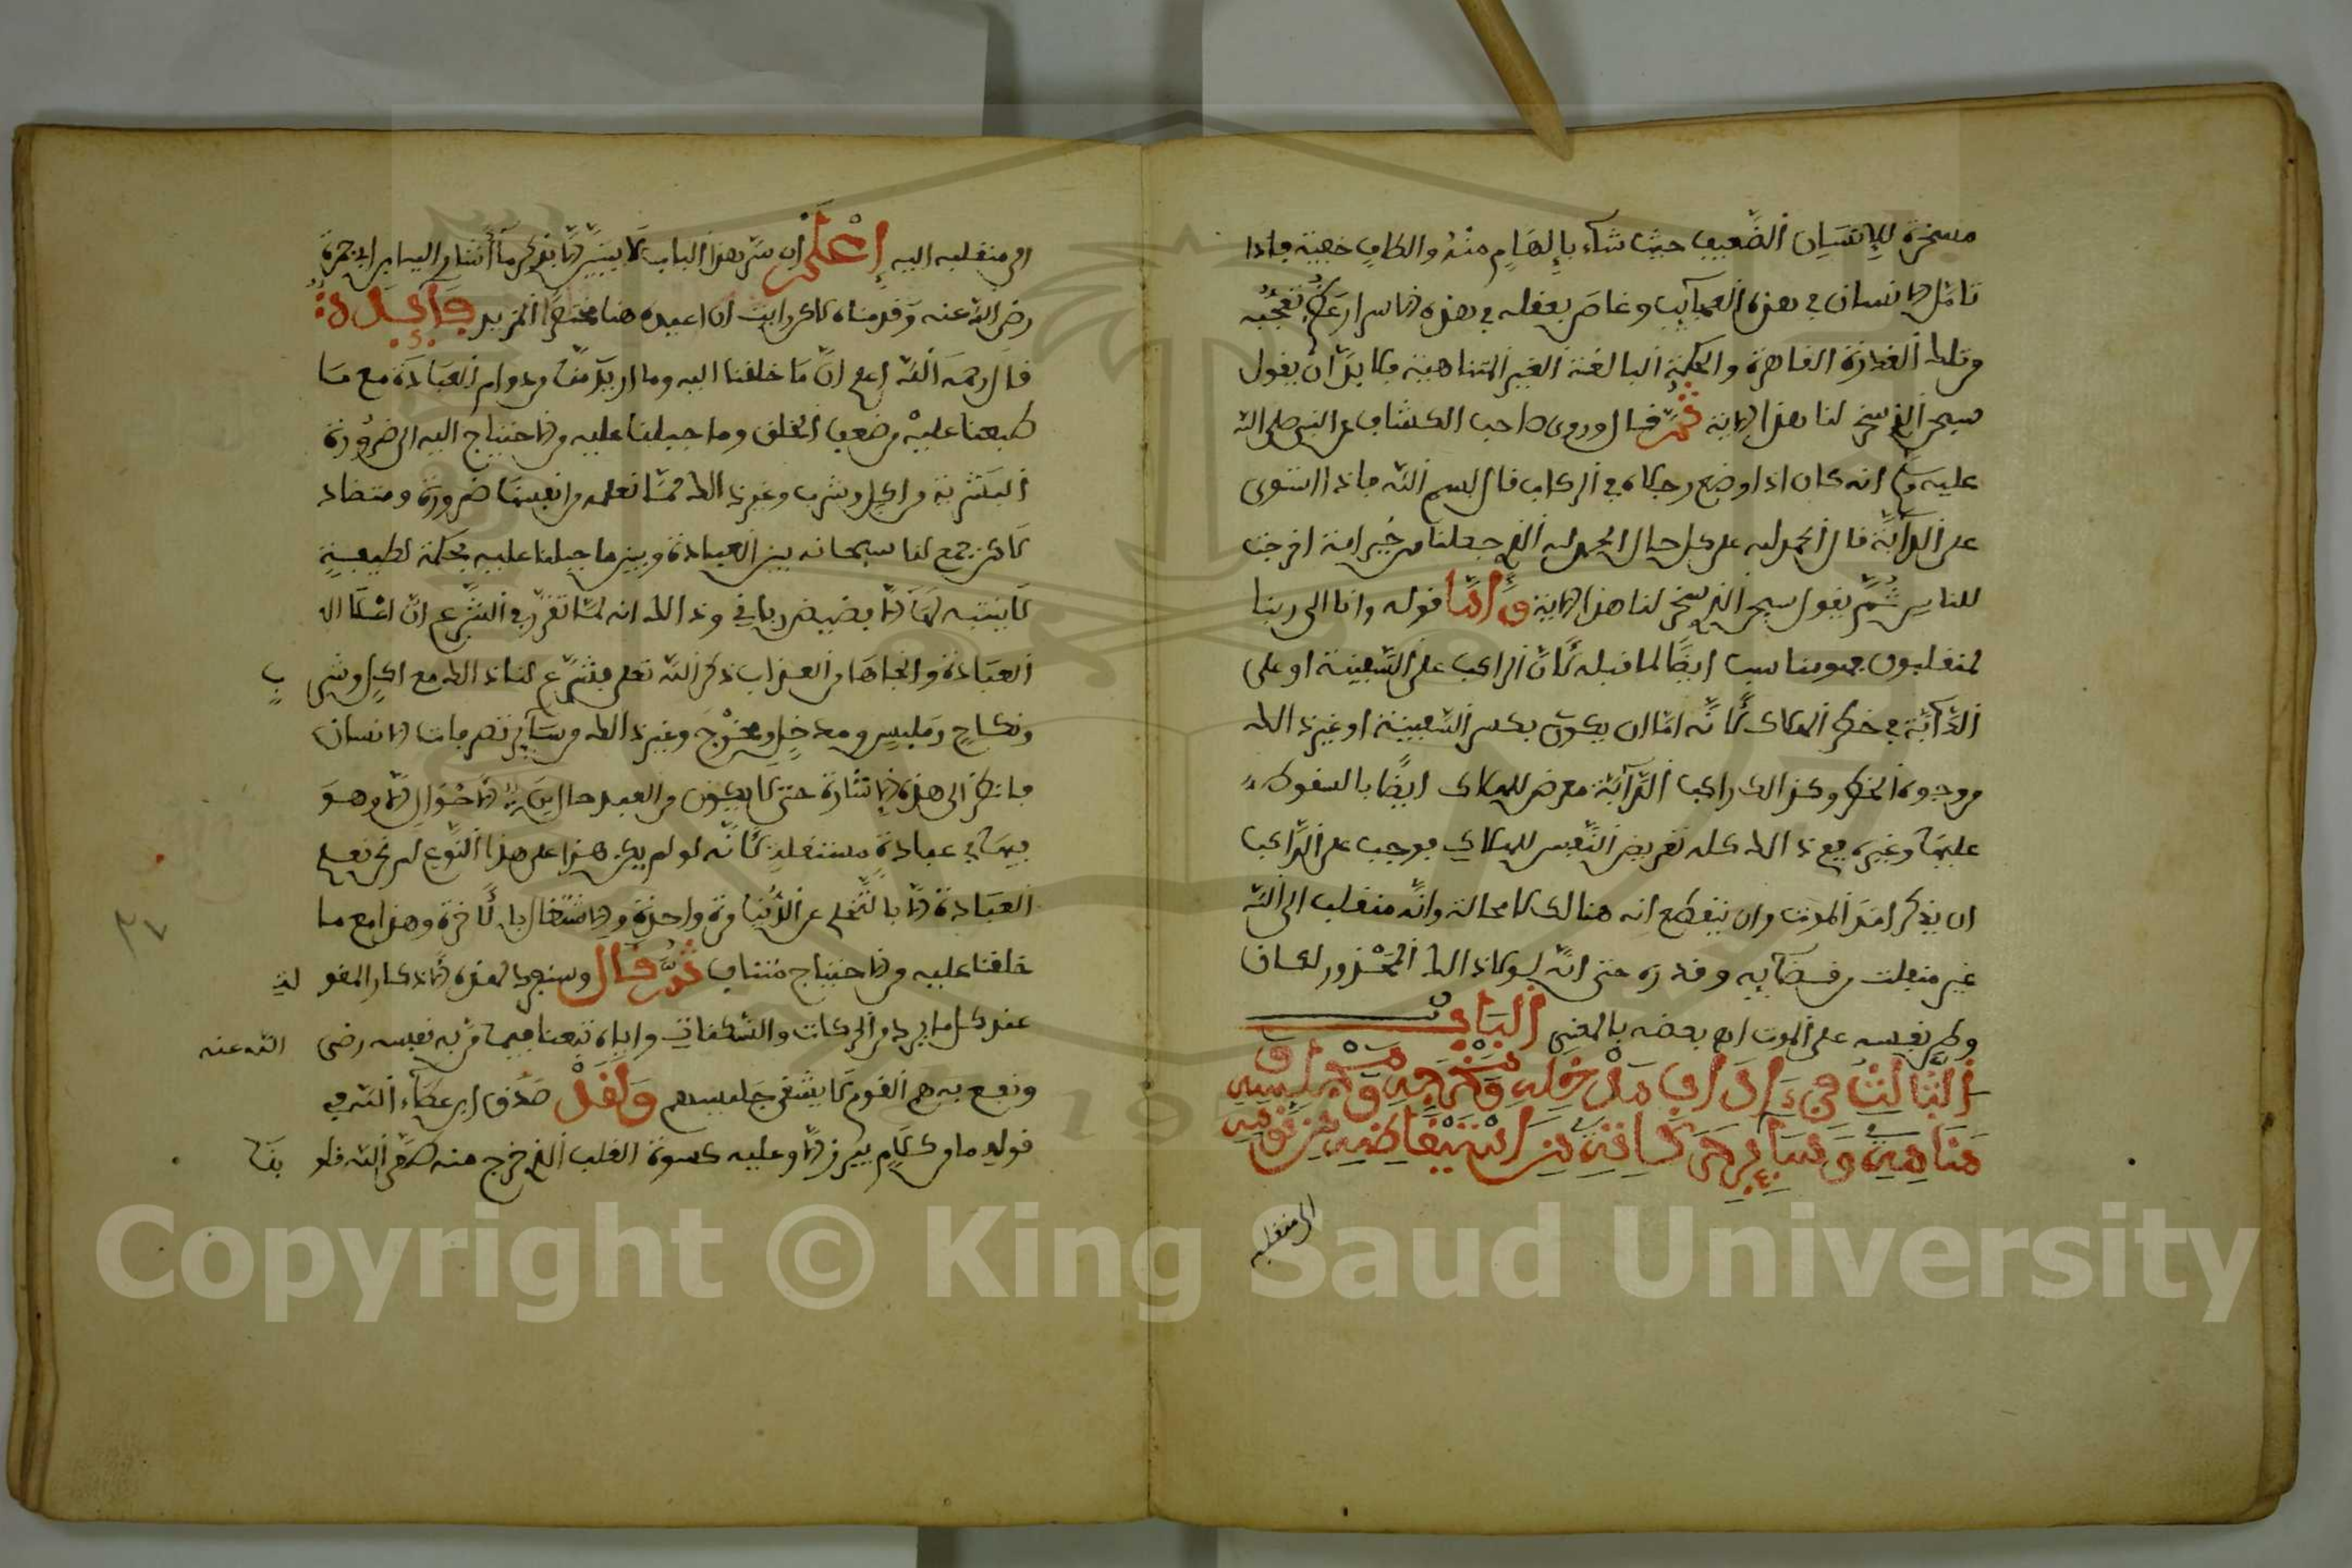 مسخرة للإنسان الضعيف حيث شاء بإلهام منه والطاف خفية فإذا
تامل الانسان في هذه العجايب وغاص بعقله في هذه الاسرار عظم تعجبه
من تلك القدرة القاهرة والحكمة البالغة الغير المتناهية فلا بد ان يقول
سبحن الذي سخر لنا هذا الاية ثم قال وروى صاحب الكشاف عن النبي صلى الله
عليه وسلم انه كان اذا وضع رجله في الركاب قال بسم الله فاذا استوى
على الدابة قال الحمد لله على كل حال الحمد لله الذي جعلنا من خير امة اخرجت
للناس ثم يقول سبحن الذي سخر لنا هذا الاية واما قوله وانا الى ربنا
لمنقلبون فهو مناسب ايضا لما قبله لان الراكب على السفينة او على
الدابة في خطر الهلاك لانه اما ان يكون بكسر السفينة او غير ذلك
من وجوه الخطر وكذلك راكب الدابة معرض للهلاك ايضا بالسقوط
عليها وغيره ففي ذلك كله تعريض النفس للهلاك فوجب على الراكب
ان يذكر امر الموت وان يقطع انه هنالك لا محالة وانه منقلب الى الله
غير منفلت من قضايه وقدره حتى انه لو كان ذلك المحذور لكان
وطن نفسه على الموت اهـ بعضه بالمعنى الباب
الثالث في اداب مدخله ومخرجه وملبسه
مناهيه وساير حركاته من استيقاظه من نومه
الى منقلبه
الى منقلبه اليه اعلم ان سر هذا الباب لا يتبين الا بذكر ما اشار اليه ابن ابي جمرة
رضي الله عنه وقدمناه لاكن رايت ان اعيده هنا المزيد فايدة
قال رحمه الله اعلم ان ما خلقنا اليه وما اريد منا من دوام العبادة مع ما
طبعنا عليه من ضعف الخلق وما جبلنا عليه من الاحتياج اليه الى ضرورة
البشرية من اكل وشرب وغير ذلك مما نعلمه من انفسنا ضرورة ومتضاد
لاكن جمع لنا سبحانه بين العبادة وبين ما جبلنا عليه بحكمة لطيفة
لا ينتبه لها الا بفيض رباني وذلك انه لما تقرر في الشرع ان اعلا
العبادة وانجاها من العذاب ذكر الله تعلى فشرع لنا ذلك مع اكل وشرب
ونكاح وملبس ومدخل ومخرج وغير ذلك من ساير تصرفات الانسان
فانظر الى هذه الاشارة حتى لا يكون من العبد حال من الاحوال الا وهو
فيها في عبادة مستقلة لانه لو لم يكن هذا على هذا النوع لم تحصل
العبادة الا بالتخلي عن الدنيا مرة واحدة والاشتغال بالاخرة وهذا مع ما
خلقنا عليه من الاحتياج متناف ثم قال وسنعود لهذه الاذكار المقولة
عند كل ما يرد من الحركات والسكنات واياه تبعنا فيما قر به نفسه رضى الله عنه
ونفع به هم القوم لا يشقى جليسهم ولقد صدق ابن عطاء الله في
قوله ما من كلام يبرز الا وعليه كسوة القلب الذي خرج منه طهر الله قلوبنا
٢٧
Copyright © King Saud University